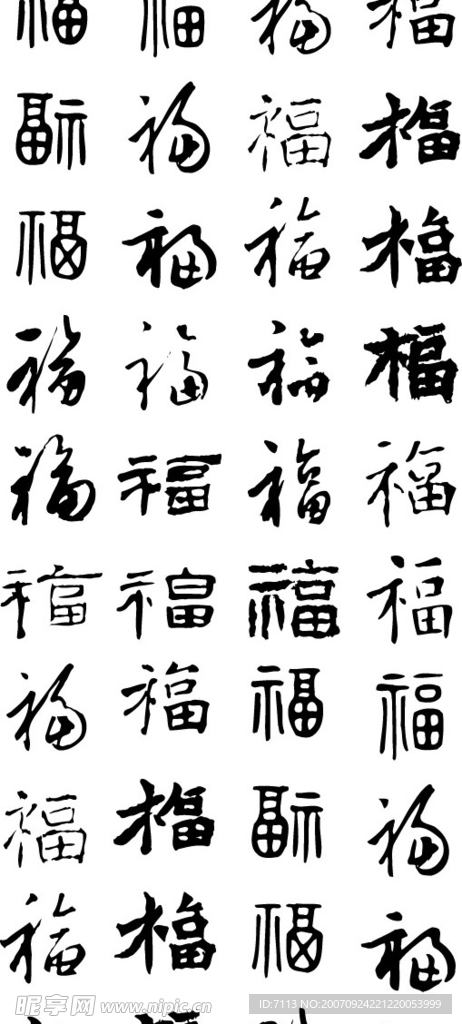 福 福 福 福
福 福 福 福
福 福 福 福
福 福 福 福
福 福 福 福
福 福 福 福
福 福 福 福
福 福 福 福
福 福 福 福
昵享网 www.nipic.cn ID:7113 NO:20070924221220053999